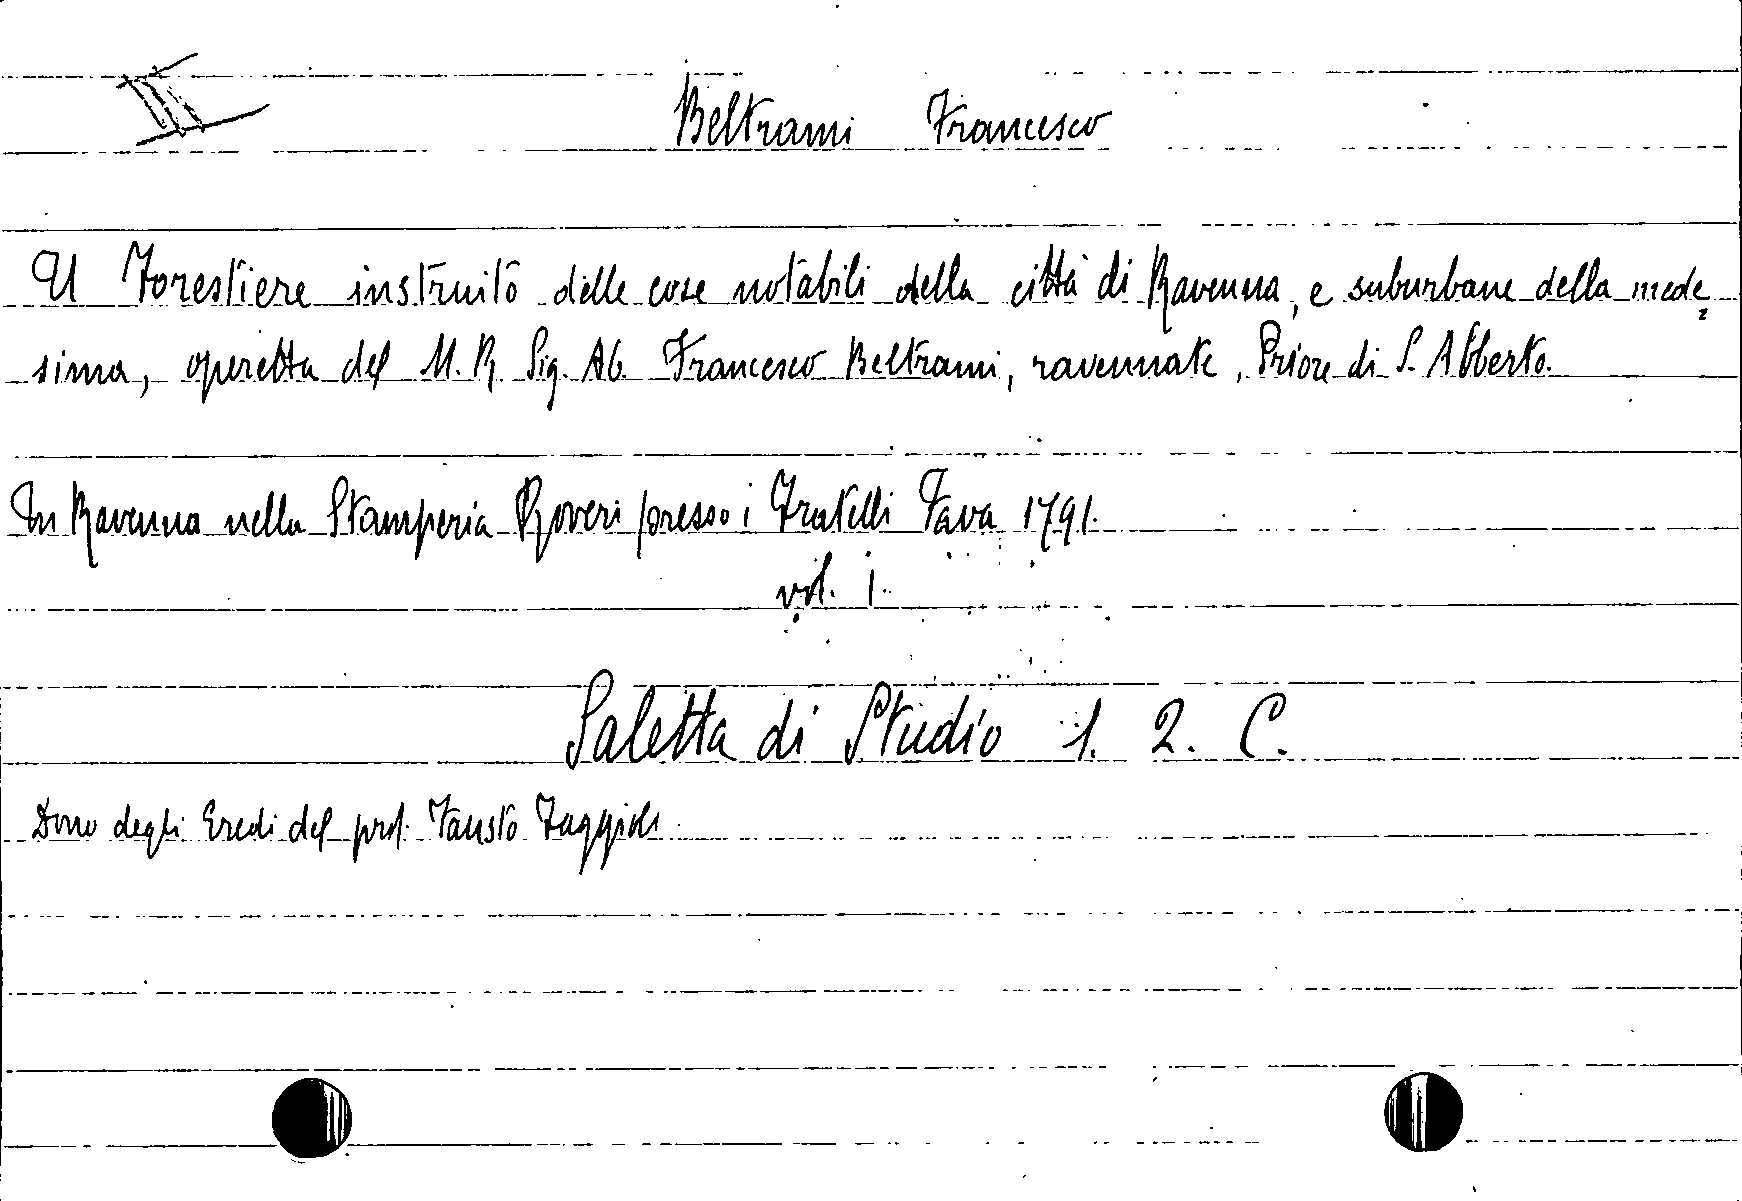 III
Beltrami Francesco
Il Forestiere instruito delle cose notabili della città di Ravenna, e suburbane della mede=
sima, operetta del M. R. Sig. Ab. Francesco Beltrami, ravennate, Priore di S. Alberto.
In Ravenna nella Stamperia Roveri presso i Fratelli Fava 1791.
vol. 1.
Saletta di Studio 1. 2. C.
Dono degli Eredi del prof. Fausto